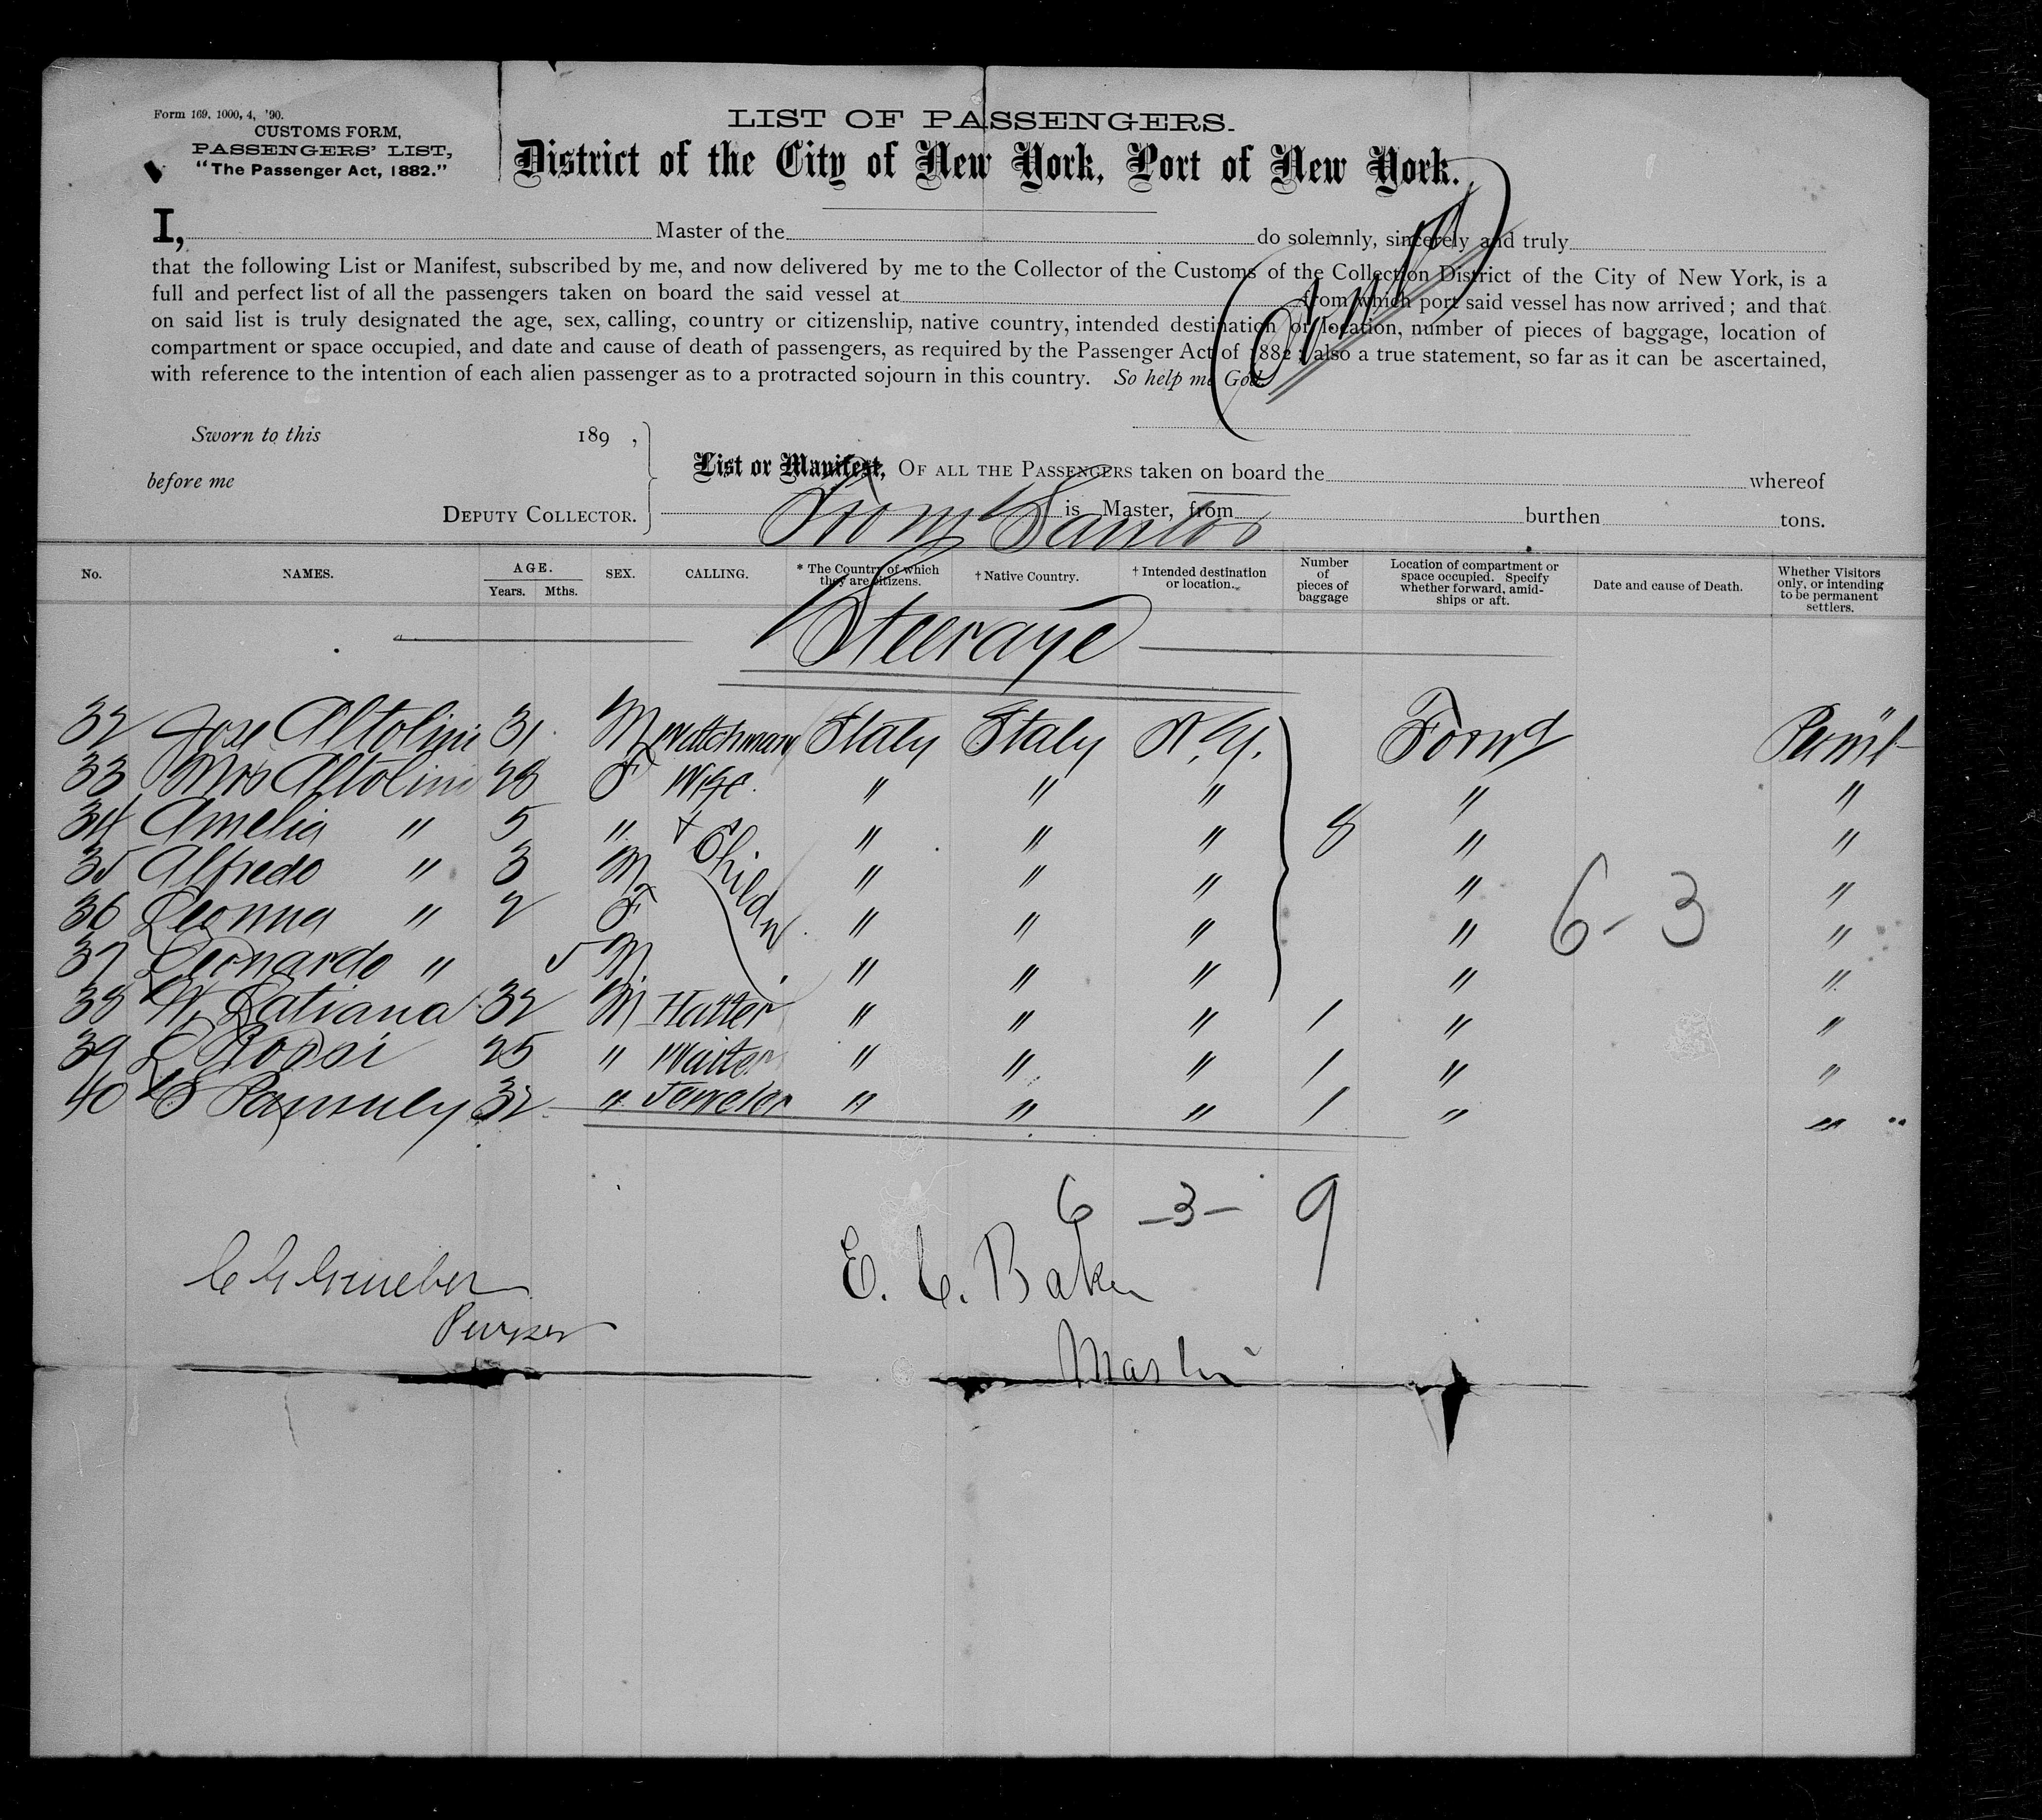 Form 169. 1000, 4, '90.
CUSTOMS FORM,
PASSENGERS' LIST,
"The Passenger Act, 1882."
LIST OF PASSENGERS.
District of the City of New York, Port of New York.
I, Master of the do solemnly, sincerely and truly
that the following List or Manifest, subscribed by me, and now delivered by me to the Collector of the Customs of the Collection District of the City of New York, is a
full and perfect list of all the passengers taken on board the said vessel at from which port said vessel has now arrived; and that
on said list is truly designated the age, sex, calling, country or citizenship, native country, intended destination or location, number of pieces of baggage, location of
compartment or space occupied, and date and cause of death of passengers, as required by the Passenger Act of 1882; also a true statement, so far as it can be ascertained,
with reference to the intention of each alien passenger as to a protracted sojourn in this country. So help me God.
Sworn to this 189 ,
before me
DEPUTY COLLECTOR.
List or Manifest, OF ALL THE PASSENGERS taken on board the whereof
is Master, from burthen tons.
From Santos
No. NAMES. AGE. Years. Mths. SEX. CALLING. * The Country of which they are citizens. † Native Country. † Intended destination or location. Number of pieces of baggage Location of compartment or space occupied. Specify whether forward, amidships or aft. Date and cause of Death. Whether Visitors only, or intending to be permanent settlers.
Steerage
32 Jose Altolini 31 M Watchman Italy Italy N.Y. Forwd Permt
33 Mrs Altolini 28 F Wife " " " " "
34 Amelia " 5 " + Childn " " " 8 " "
35 Alfredo " 3 M " " " " "
36 Leonna " 2 F " " " " 6-3 "
37 Leonardo " 5 M " " " " "
38 W. Latiana 32 M Hatter " " " 1 " "
39 L Rossi 25 " Waiter " " " 1 " "
40 32 " Jeweler " " " 1 " "
6 -3- 9
E. C. Baker
Purser
Master